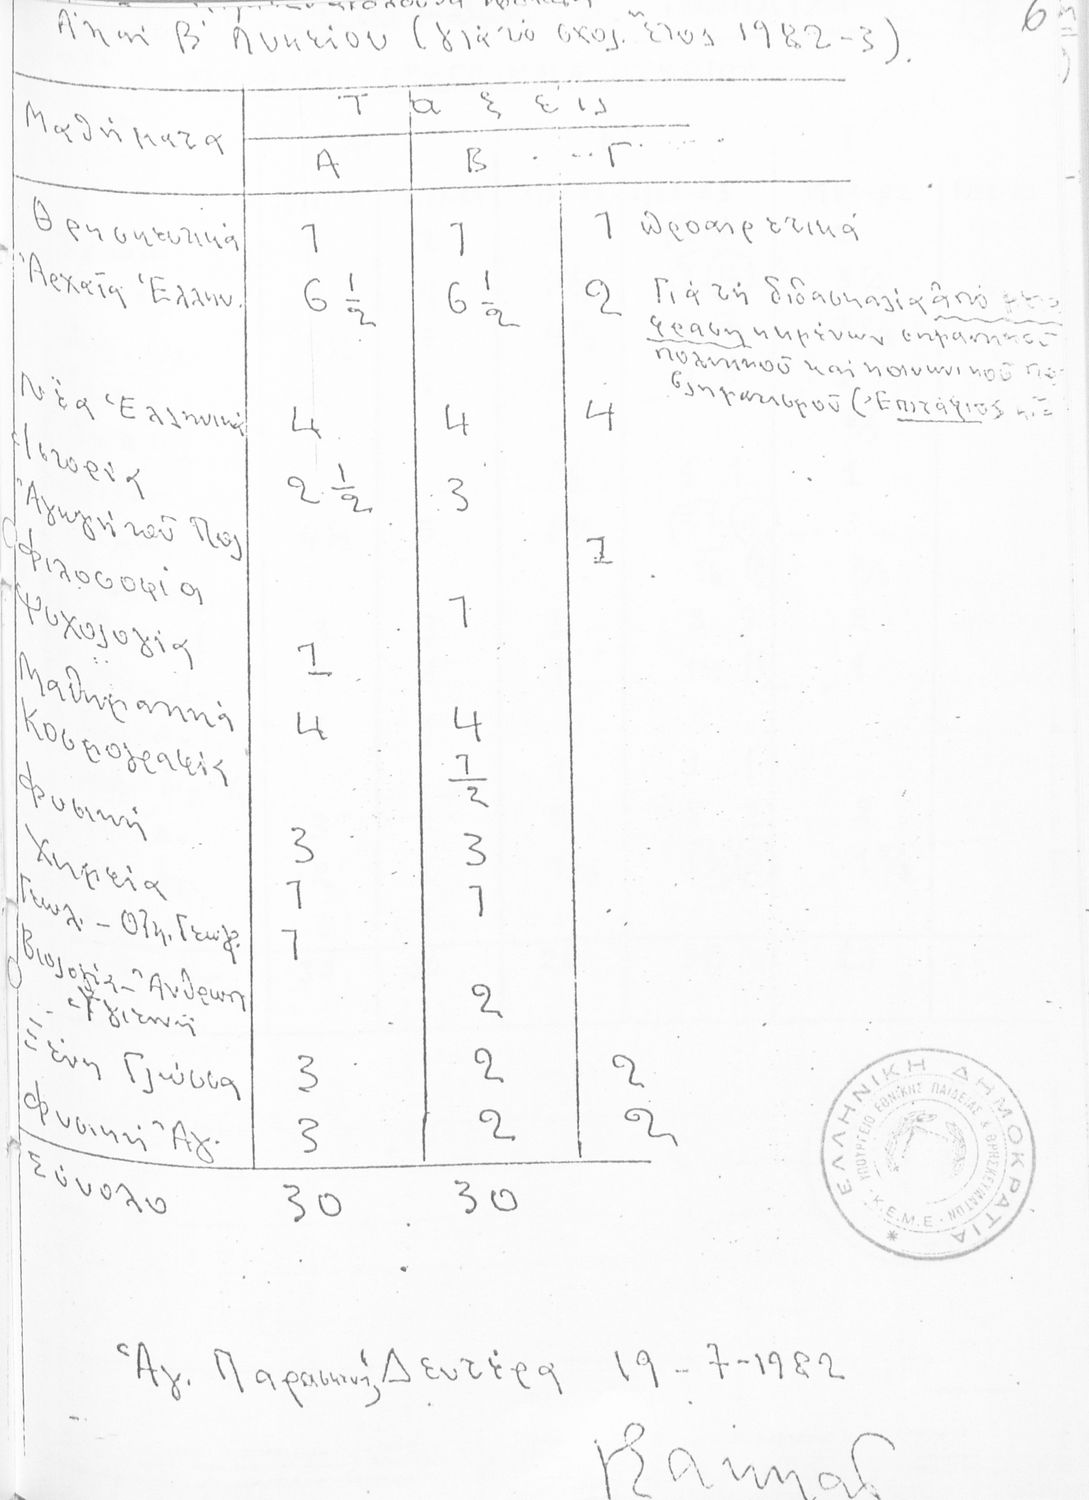 Α' καί Β' Λυκείου (γιά τό σχολ. ἔτος 1982-3).
6
Μαθήματα Τάξεις
Α Β Γ
Θρησκευτικά 1 1 1 προαιρετικά
Ἀρχαῖα Ἑλλην. 6 1/2 6 1/2 2 Γιά τή διδασκαλία ἀπό
φραση κειμένων σημαντικοῦ
πολιτικοῦ καί κοινωνικοῦ
(Ἐπιτάφιος κ.ἄ
Νέα Ἑλληνικά 4 4 4
Ἱστορία 2 1/2 3
Ἀγωγή τοῦ Πολ 1
Φιλοσοφία 1
Ψυχολογία 1
Μαθηματικά 4 4
Κοσμογραφία 1/2
Φυσική 3 3
Χημεία 1 1
Γεωλ. - Οἰκ. Γεωγρ. 1
Βιολογία - Ἀνθρωπ
Ὑγιεινή 2
Ξένη Γλώσσα 3 2 2
Φυσική Ἀγ. 3 2 2
Σύνολο 30 30
ΕΛΛΗΝΙΚΗ ΔΗΜΟΚΡΑΤΙΑ
ΥΠΟΥΡΓΕΙΟ ΕΘΝΙΚΗΣ ΠΑΙΔΕΙΑΣ & ΘΡΗΣΚΕΥΜΑΤΩΝ
Κ.Ε.Μ.Ε.
Ἁγ. Παρασκευή, Δευτέρα 19-7-1982